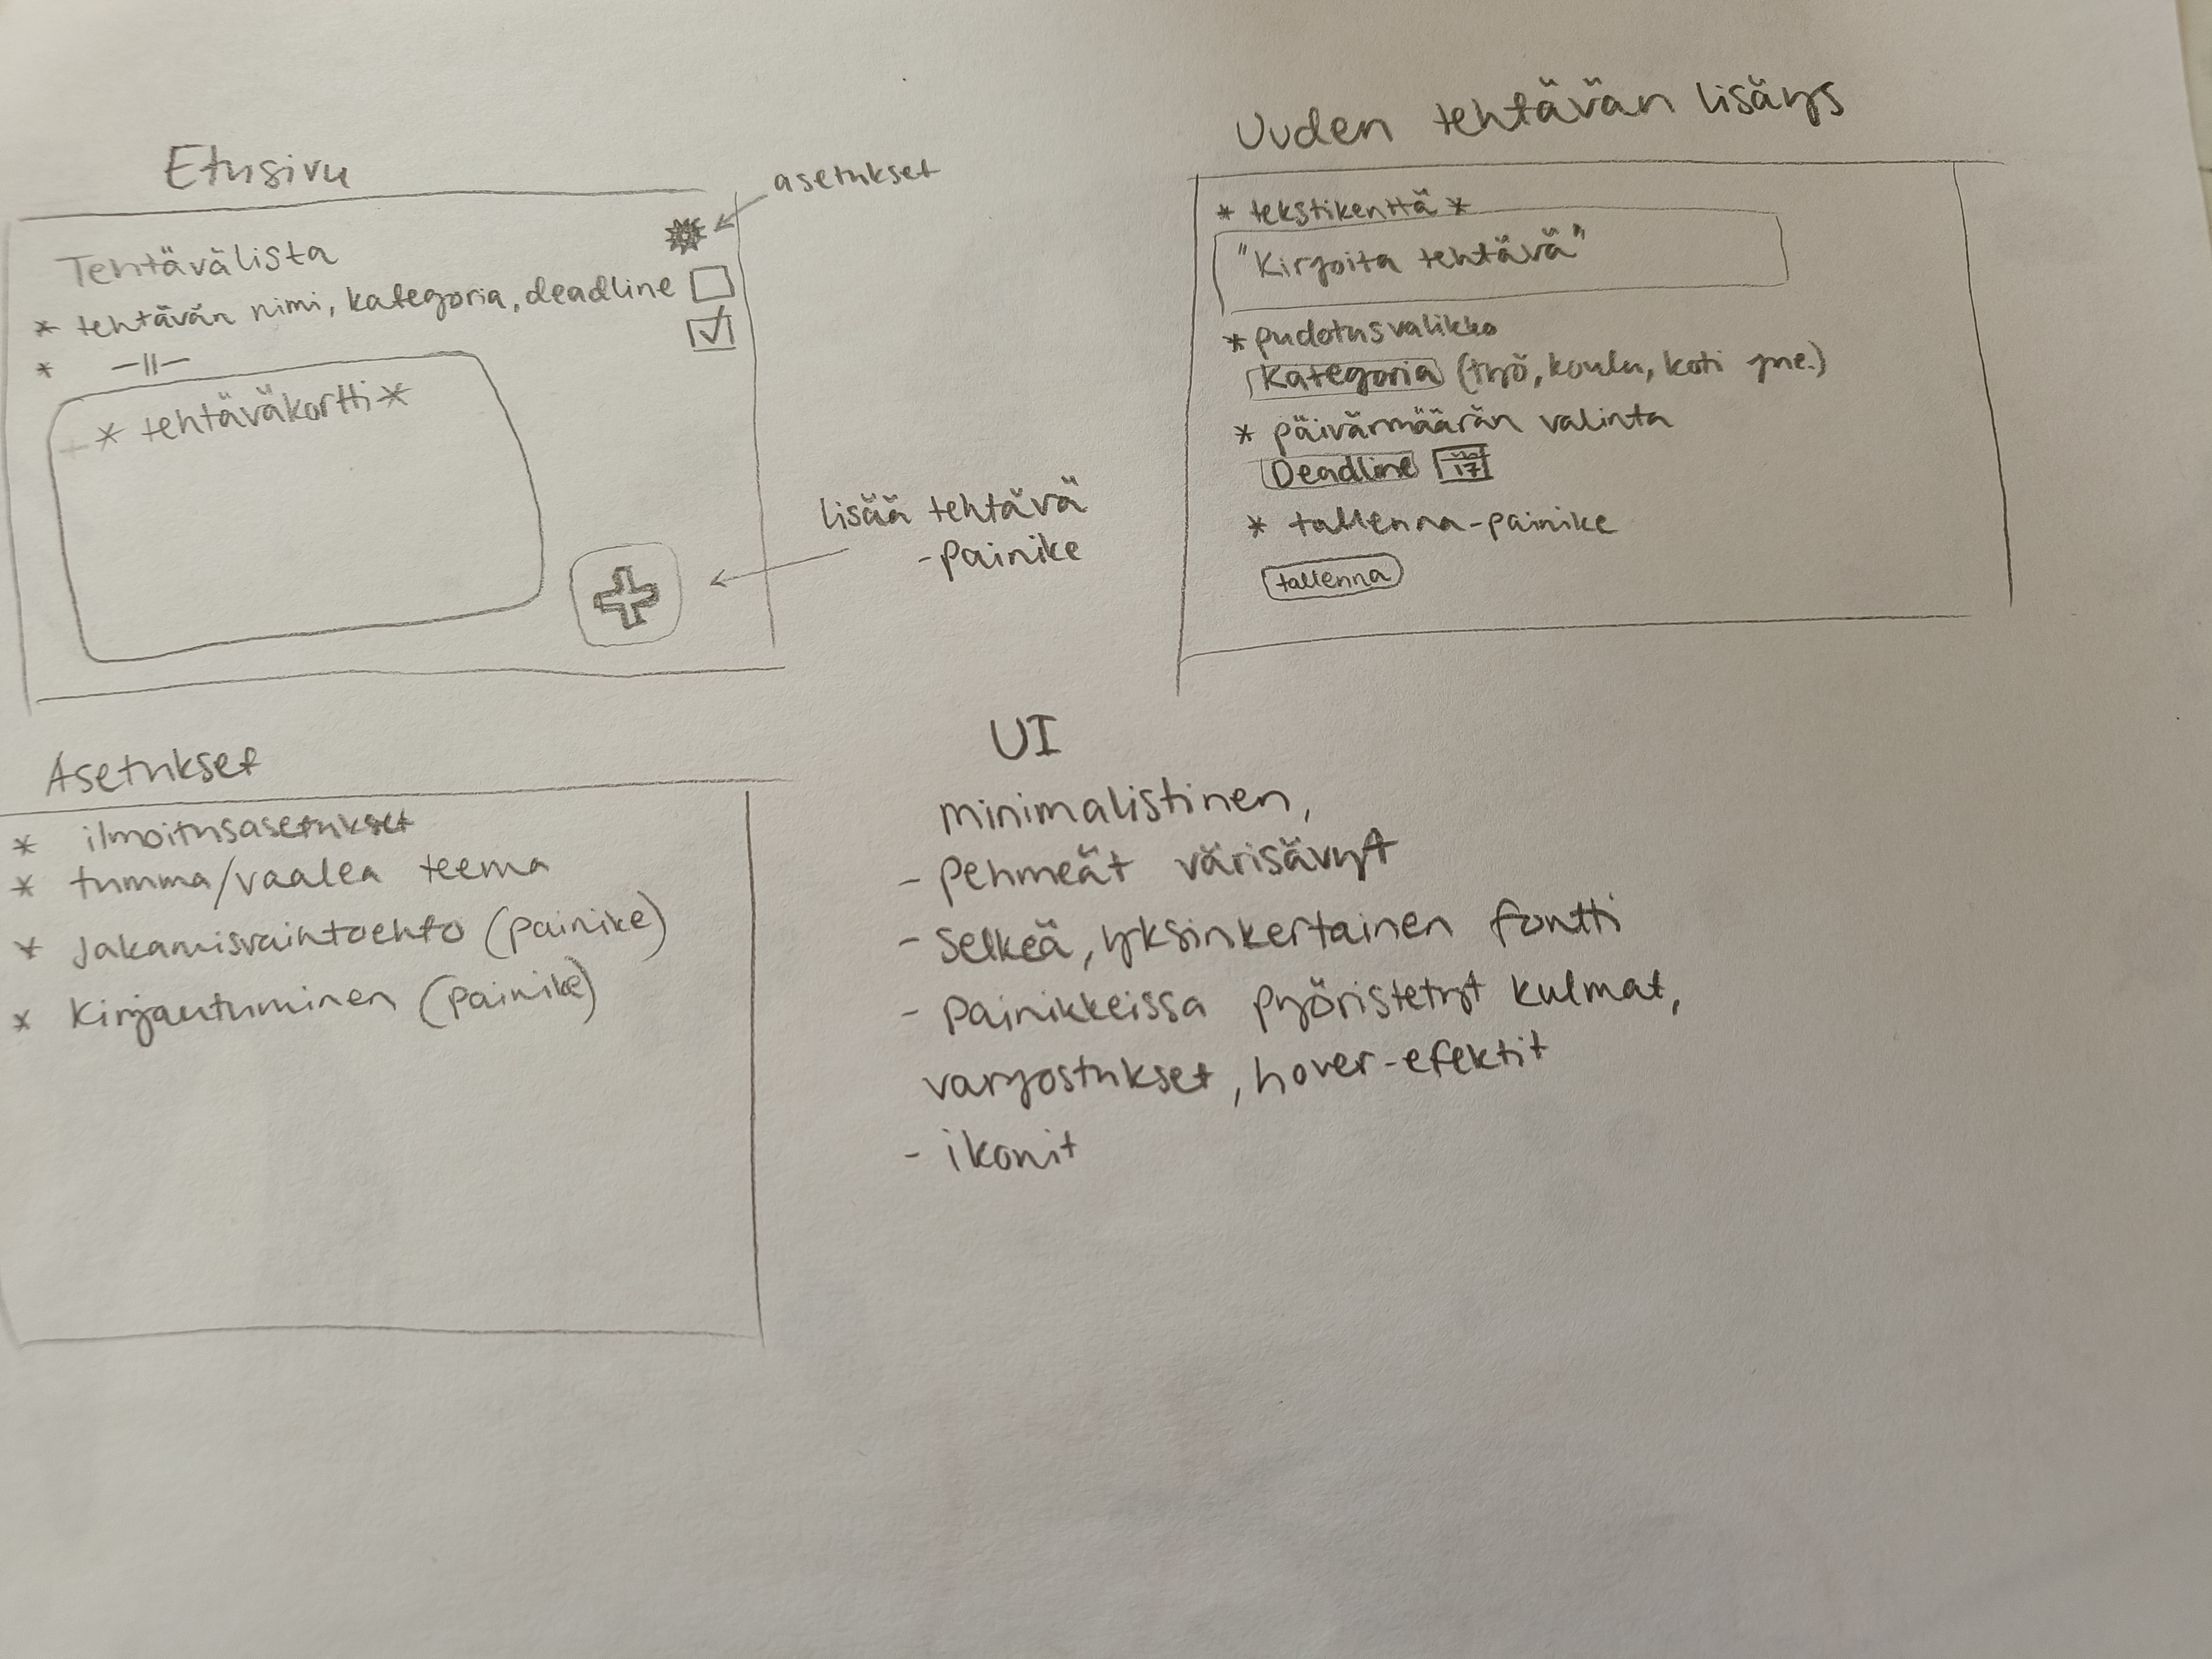 Etusivu
asetukset
Tehtävälista
* tehtävän nimi, kategoria, deadline
* —||—
* tehtäväkortti *
lisää tehtävä
-painike
Uuden tehtävän lisäys
* tekstikenttä *
"Kirjoita tehtävä"
* pudotusvalikko
Kategoria (työ, koulu, koti jne.)
* päivärmäärän valinta
Deadline 17
* tallenna-painike
tallenna
Asetukset
* ilmoitusasetukset
* tumma/vaalea teema
* Jakamisvaihtoehto (painike)
* Kirjautuminen (painike)
UI
minimalistinen,
- pehmeät värisävyt
- selkeä, yksinkertainen fontti
- painikkeissa pyöristetyt kulmat,
varjostukset, hover-efektit
- ikonit